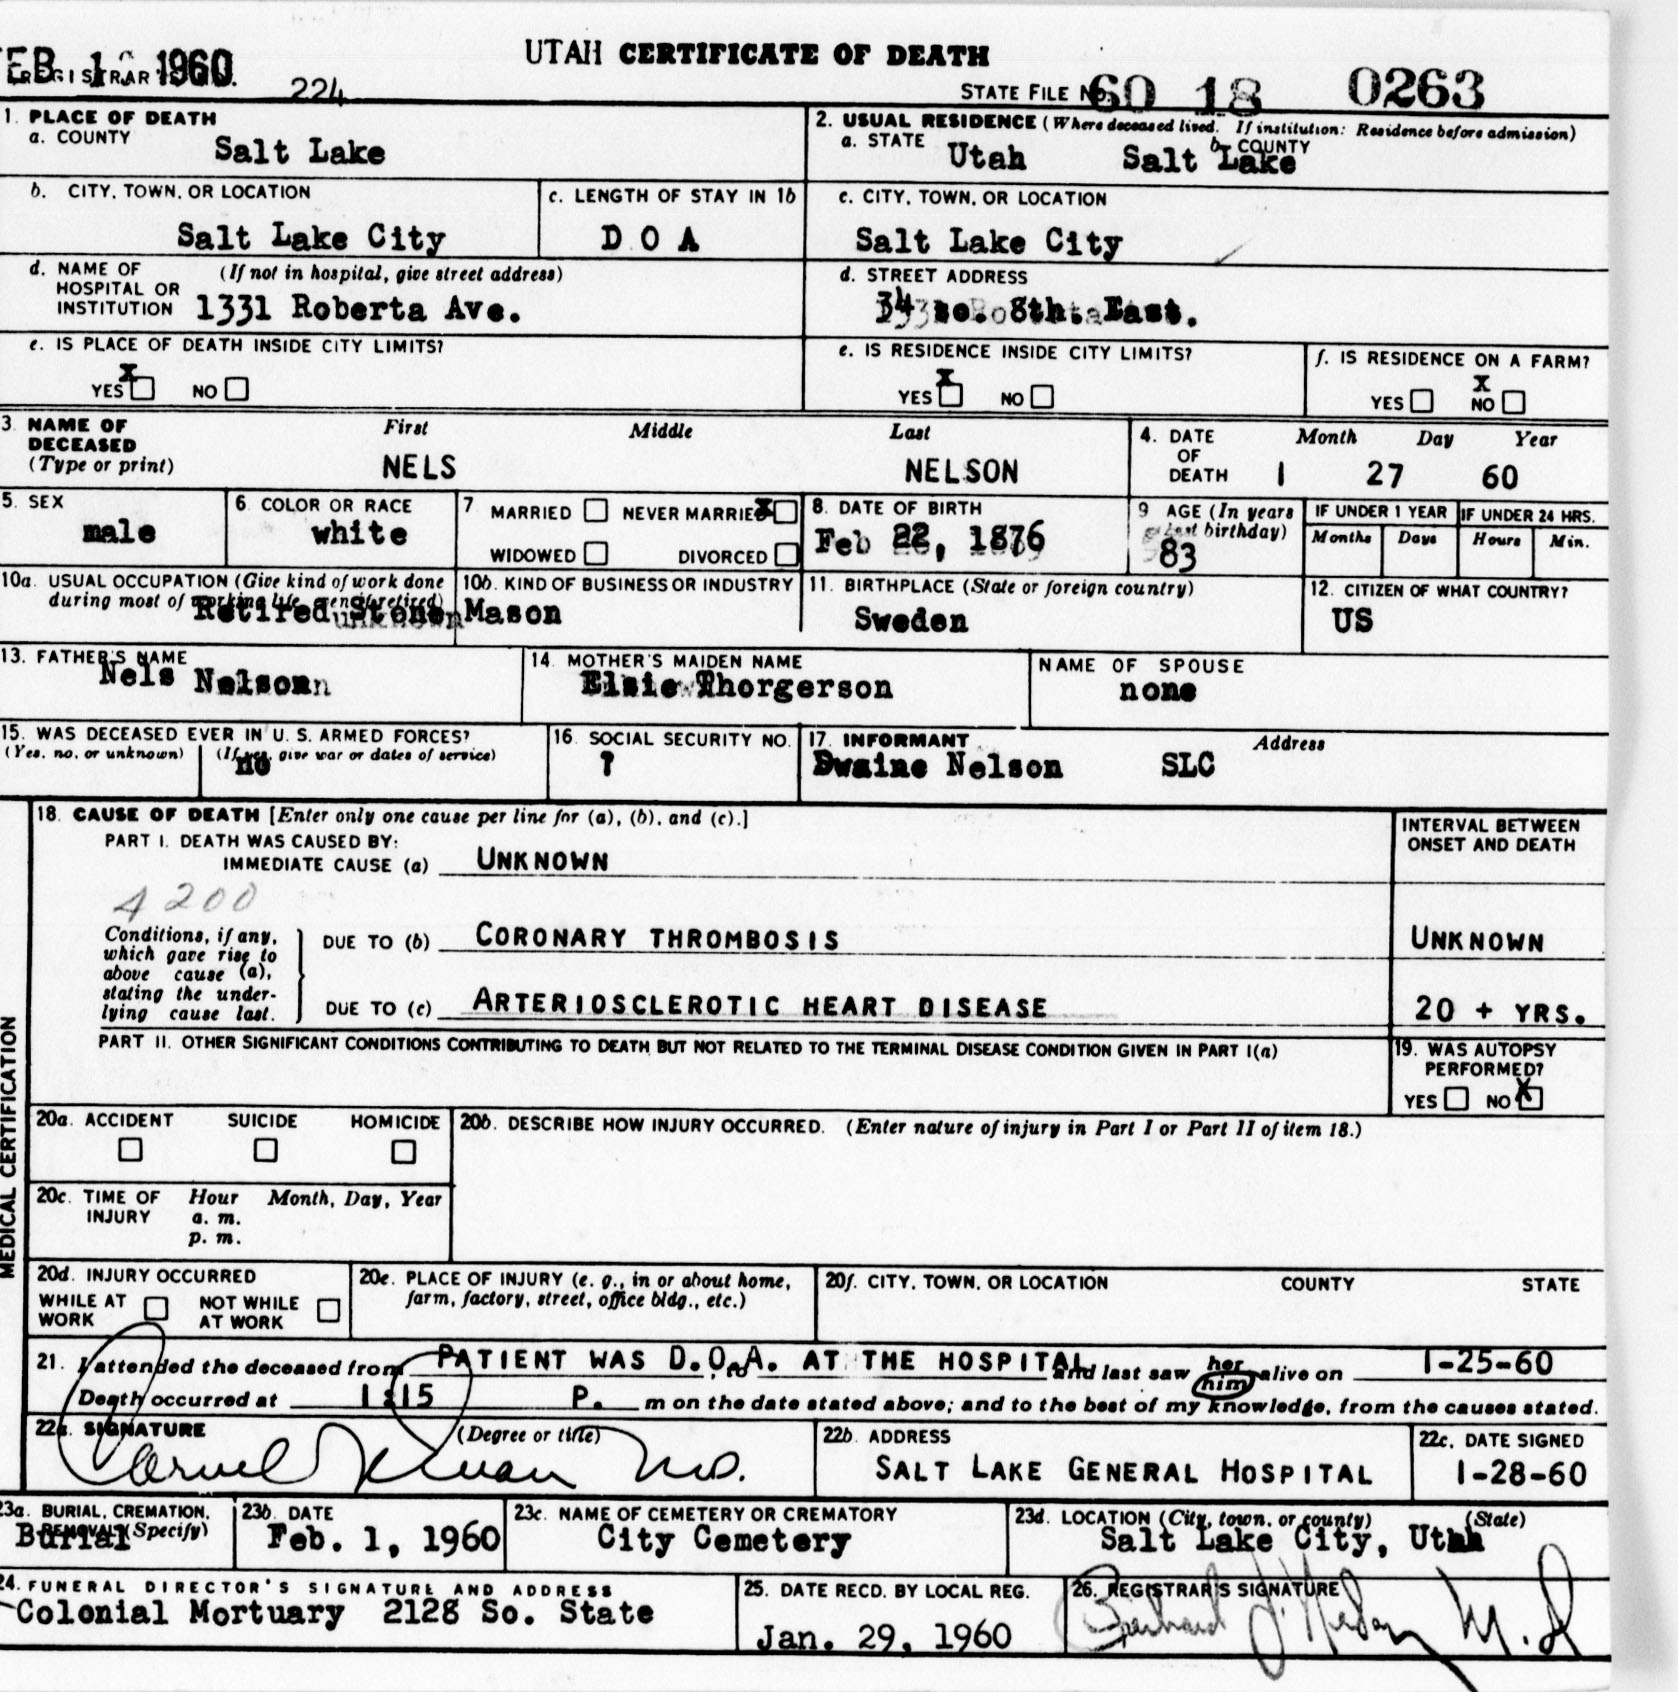 UTAH CERTIFICATE OF DEATH
FEB 1 1960
REGISTRAR
224
STATE FILE NO. 60 18 0263
1. PLACE OF DEATH
a. COUNTY
Salt Lake
2. USUAL RESIDENCE (Where deceased lived. If institution: Residence before admission)
a. STATE
Utah
b. COUNTY
Salt Lake
b. CITY, TOWN, OR LOCATION
Salt Lake City
c. LENGTH OF STAY IN 1b
D O A
c. CITY, TOWN, OR LOCATION
Salt Lake City
d. NAME OF HOSPITAL OR INSTITUTION
(If not in hospital, give street address)
1331 Roberta Ave.
d. STREET ADDRESS
34 so. 8th. East.
e. IS PLACE OF DEATH INSIDE CITY LIMITS?
X
YES NO
e. IS RESIDENCE INSIDE CITY LIMITS?
X
YES NO
f. IS RESIDENCE ON A FARM?
X
YES NO
3. NAME OF DECEASED
(Type or print)
First Middle Last
NELS NELSON
4. DATE OF DEATH
Month Day Year
1 27 60
5. SEX
male
6. COLOR OR RACE
white
7 MARRIED NEVER MARRIED X
WIDOWED DIVORCED
8. DATE OF BIRTH
Feb 22, 1876
9 AGE (In years last birthday)
83
IF UNDER 1 YEAR
Months Days
IF UNDER 24 HRS.
Hours Min.
10a. USUAL OCCUPATION (Give kind of work done during most of working life, even if retired)
Retired Stone
10b. KIND OF BUSINESS OR INDUSTRY
Mason
11. BIRTHPLACE (State or foreign country)
Sweden
12. CITIZEN OF WHAT COUNTRY?
US
13. FATHER'S NAME
Nels Nelson
14. MOTHER'S MAIDEN NAME
Elsie Thorgerson
NAME OF SPOUSE
none
15. WAS DECEASED EVER IN U. S. ARMED FORCES?
(Yes, no, or unknown) (If yes, give war or dates of service)
no
16. SOCIAL SECURITY NO.
?
17. INFORMANT Address
Dwaine Nelson SLC
MEDICAL CERTIFICATION
18. CAUSE OF DEATH [Enter only one cause per line for (a), (b), and (c).]
PART I. DEATH WAS CAUSED BY:
IMMEDIATE CAUSE (a) UNKNOWN
INTERVAL BETWEEN ONSET AND DEATH
4200
Conditions, if any, which gave rise to above cause (a), stating the underlying cause last.
DUE TO (b) CORONARY THROMBOSIS
UNKNOWN
DUE TO (c) ARTERIOSCLEROTIC HEART DISEASE
20 + YRS.
PART II. OTHER SIGNIFICANT CONDITIONS CONTRIBUTING TO DEATH BUT NOT RELATED TO THE TERMINAL DISEASE CONDITION GIVEN IN PART I(a)
19. WAS AUTOPSY PERFORMED?
YES NO X
20a. ACCIDENT SUICIDE HOMICIDE
20b. DESCRIBE HOW INJURY OCCURRED. (Enter nature of injury in Part I or Part II of item 18.)
20c. TIME OF INJURY Hour Month, Day, Year
a. m.
p. m.
20d. INJURY OCCURRED
WHILE AT WORK NOT WHILE AT WORK
20e. PLACE OF INJURY (e. g., in or about home, farm, factory, street, office bldg., etc.)
20f. CITY, TOWN, OR LOCATION COUNTY STATE
21. I attended the deceased from PATIENT WAS D.O.A. AT THE HOSPITAL to and last saw her him alive on 1-25-60
Death occurred at 1:15 P. m on the date stated above; and to the best of my knowledge, from the causes stated.
22a. SIGNATURE (Degree or title)
M.D.
22b. ADDRESS
SALT LAKE GENERAL HOSPITAL
22c. DATE SIGNED
1-28-60
23a. BURIAL, CREMATION, REMOVAL (Specify)
Burial
23b. DATE
Feb. 1, 1960
23c. NAME OF CEMETERY OR CREMATORY
City Cemetery
23d. LOCATION (City, town, or county) (State)
Salt Lake City, Utah
24. FUNERAL DIRECTOR'S SIGNATURE AND ADDRESS
Colonial Mortuary 2128 So. State
25. DATE RECD. BY LOCAL REG.
Jan. 29, 1960
26. REGISTRAR'S SIGNATURE
M.D.